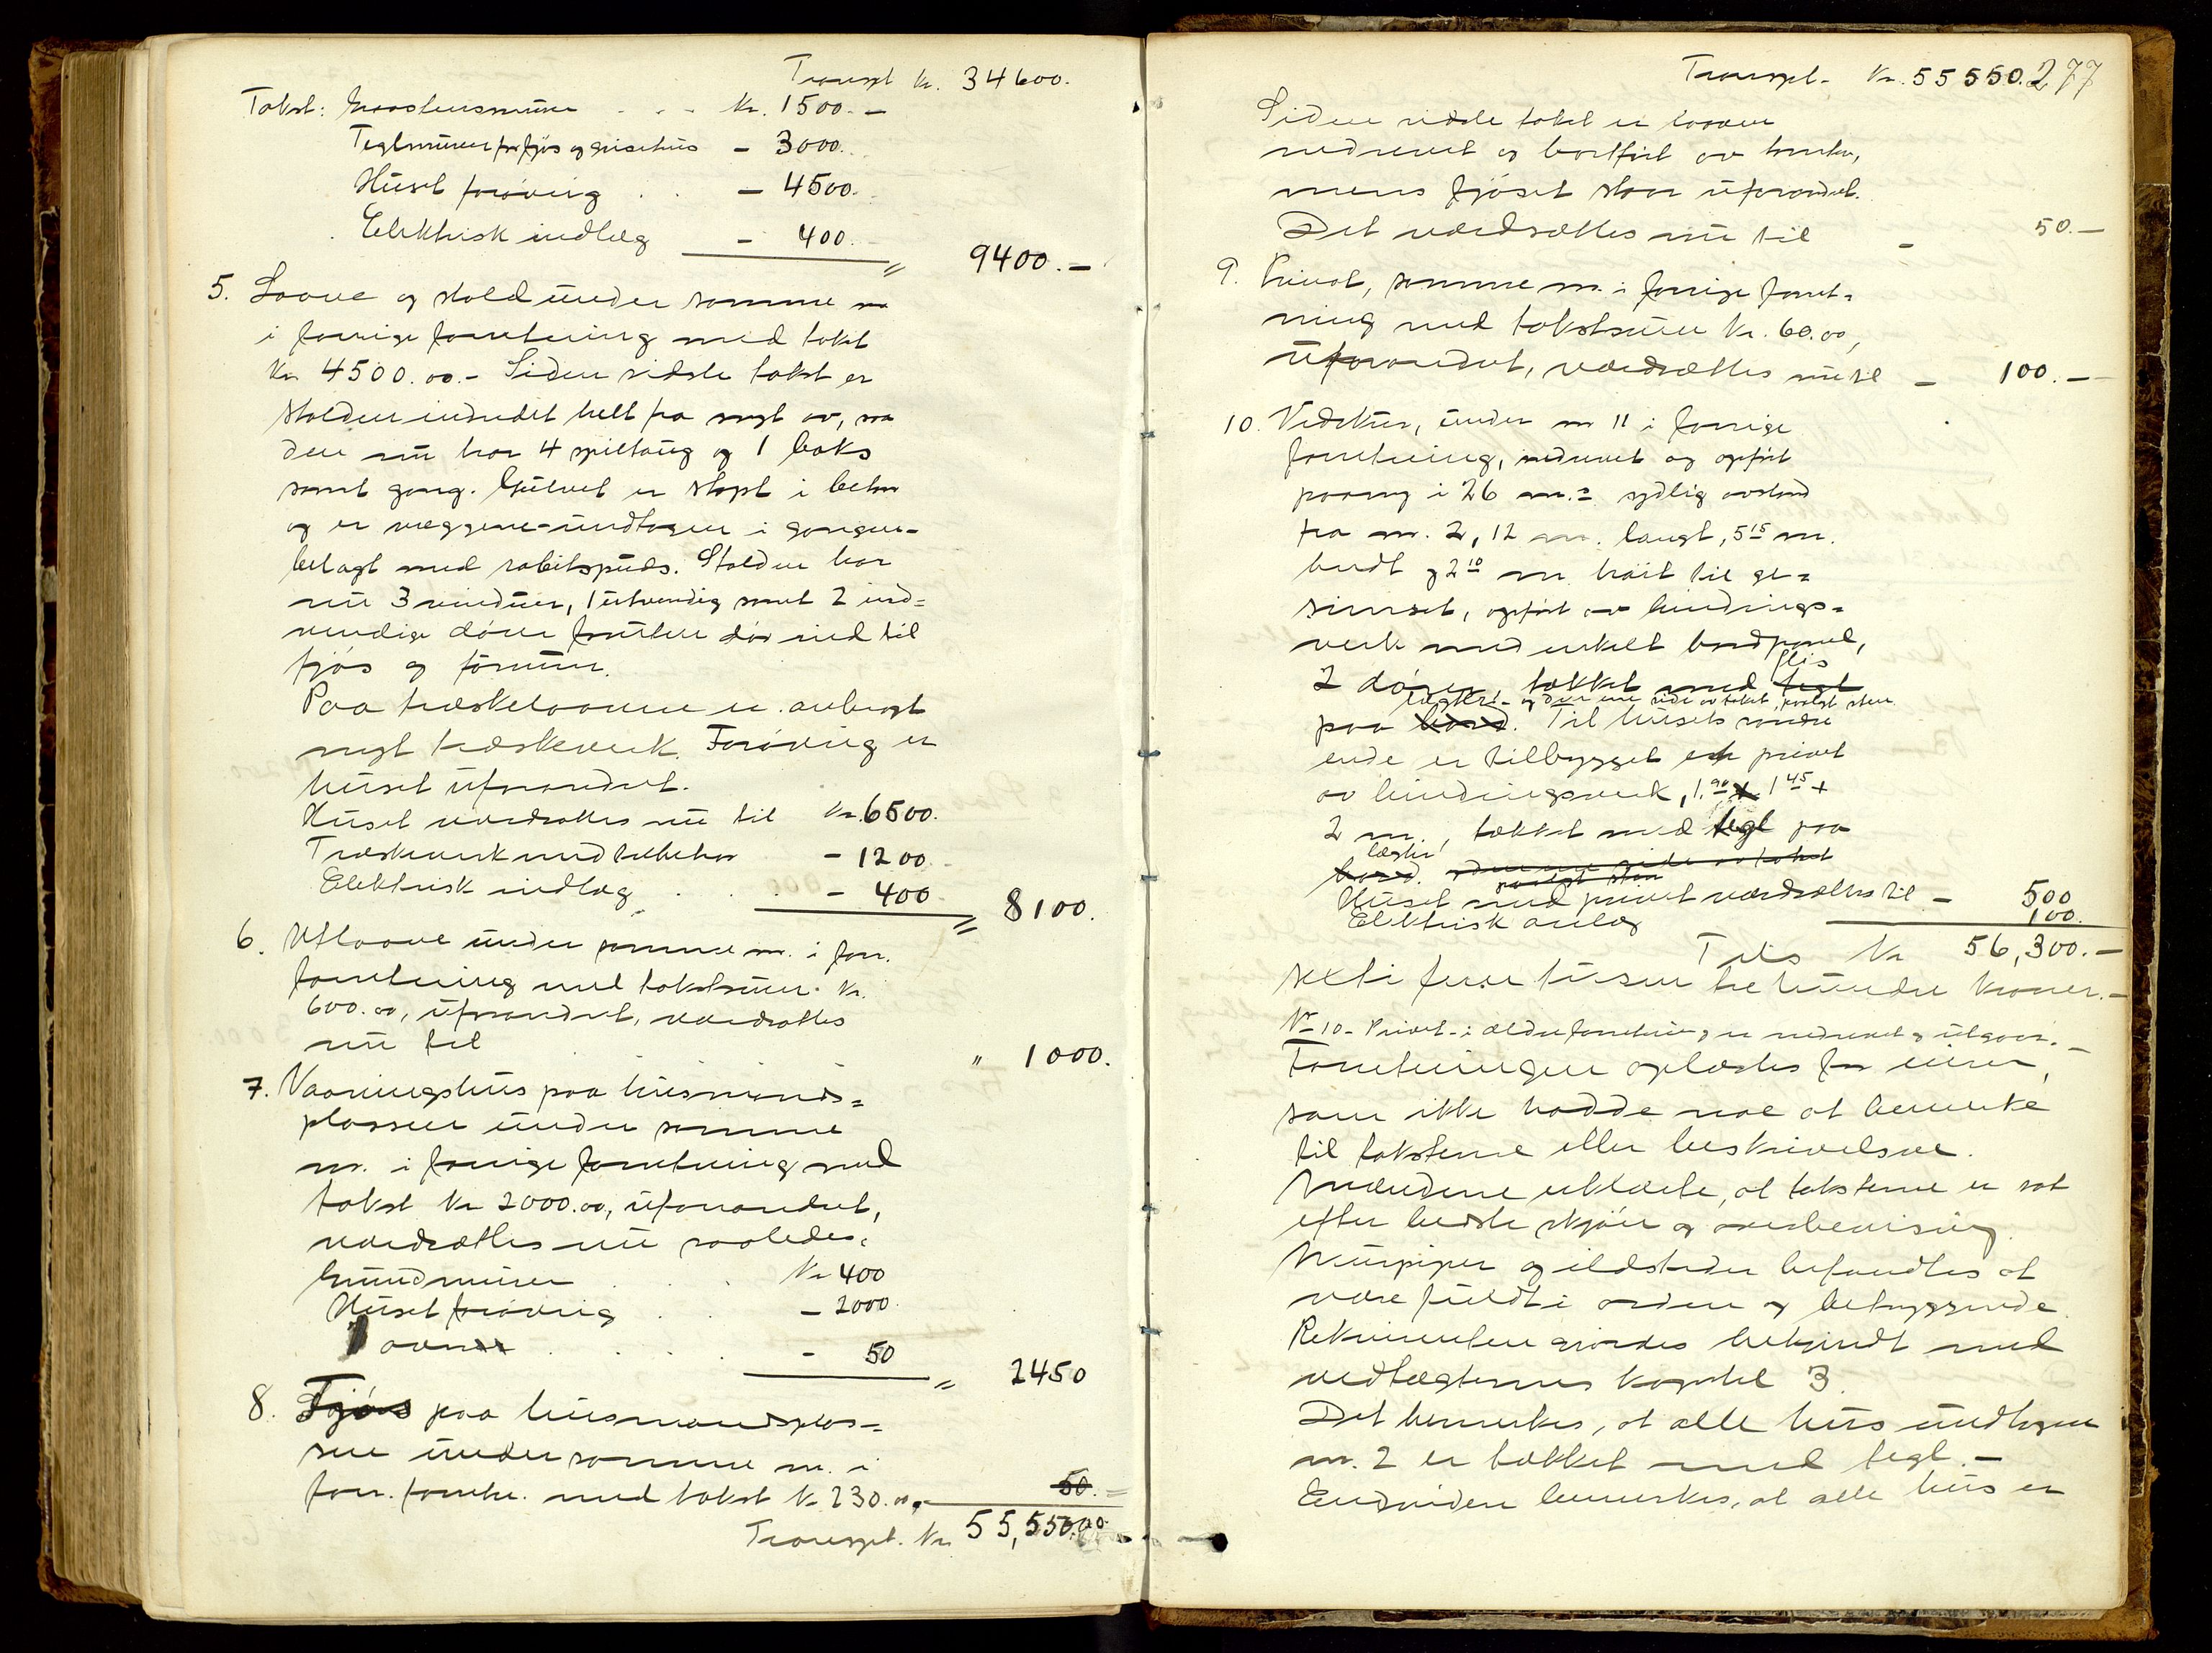 Transpt kr. 34600.
Takst: Graastensmure . . . kr. 1500.-
Teglmuren for fjøs og grisehus - 3000.
Huset forøvrig . . - 4500.
Elektrisk indlæg - 400.
" 9400.-
5. Laave og stald under samme nr
i forrige forretning med takst
kr 4500.00.- Siden sidste takst er
stalden indredet helt fra nyt av, saa
den nu har 4 spiltaug og 1 boks
samt gang. Gulvet er støpt i beton
og er væggene - undtagen i gangen -
belagt med rabitspuds. Stalden har
nu 3 vinduer, 1 utvendig samt 2 ind=
vendige døre foruten dør ned til
fjøs og forrum.
Paa træskelaaven er anbragt
nyt træskeverk. Forøvrig er
huset uforandret.
Huset værdsættes nu til kr. 6500.
Træskeverk med tilbehør - 1200.
Elektrisk indlæg . . - 400
" 8100.
6. Utlaave under samme nr. i forr.
forretning med takstsum kr.
600.00, uforandret, værdsættes
nu til " 1000.
7. Vaaningshus paa husmands=
plassen under samme
nr. i forrige forretning med
takst kr 2000.00, uforandret,
værdsættes nu saaledes:
Grundmuren . . kr 400
Huset forøvrig . . - 2000.
1 ovn . . . . - 50
" 2450
8. Fjøs paa husmandsplas=
sen under samme nr. i
forr. forretn. med takst kr 230.00,- 50.-
Transpt. kr. 55,550.00

Transpt - kr. 55550. 277
Siden sidste takst er laaven
nedrevet og bortført av tomten,
mens fjøset staar uforandret.
Det værdsættes nu til - 50.-
9. Privat, samme nr. i forrige forret=
ning med takstsum kr. 60.00,
uforandret, værdsættes nu til - 100.-
10. Vedskur, under nr 11 i forrige
forretning, nedrevet og opført
paany i 26 m.s sydlig avstand
fra nr. 2, 12 m. langt, 5 15 m.
bredt og 2 10 m. høit til ge=
simset, opført av bindings=
verk med enkelt bordpanel,
flis
2 døre, tækket med tegl
lægter - og den ene side av taket, pålagt sten
paa bord. Til husets søndre
ende er tilbygget et privet
av bindingsverk, 1.90 x 1 45 +
2 m., tækket med tegl paa
lægter
bord. og den ene side av taket
paalagt sten
Huset med privet værdsættes til - 500
Elektrisk anlæg 100.
Tils kr 56,300.-
seksti femten tusen tre hundre kroner.-
Nr 10 - Privet - i ældre forretning er nedrevet og utgaar.-
Forretningen oplæstes for eieren,
som ikke hadde noe at bemerke
til taksterne eller beskrivelsen.
Mændene erklærte, at taksterne er sat
efter bedste skjøn og overbevisning.
Murpiper og ildsteder befandtes at
være fuldt i orden og betryggende.
Rekvirenten gjordes bekjendt med
vedtægternes kapitel 3.
Det bemerkes, at alle hus undtagen
nr. 2 er tækket med tegl.-
Endvidere bemerkes, at alle hus er